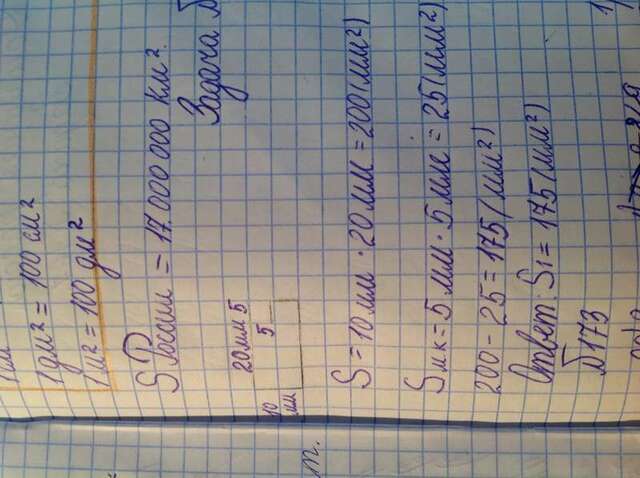 1 дм² = 100 см²
1 м² = 100 дм²
S России = 17.000 000 км².
Задача
20мм 5
10 5
мм
т.
S = 10 мм · 20 мм = 200 (мм²)
Sмк = 5 мм · 5 мм = 25 (мм²)
200 - 25 = 175 (мм²)
Ответ: S1 = 175 (мм²)
№173